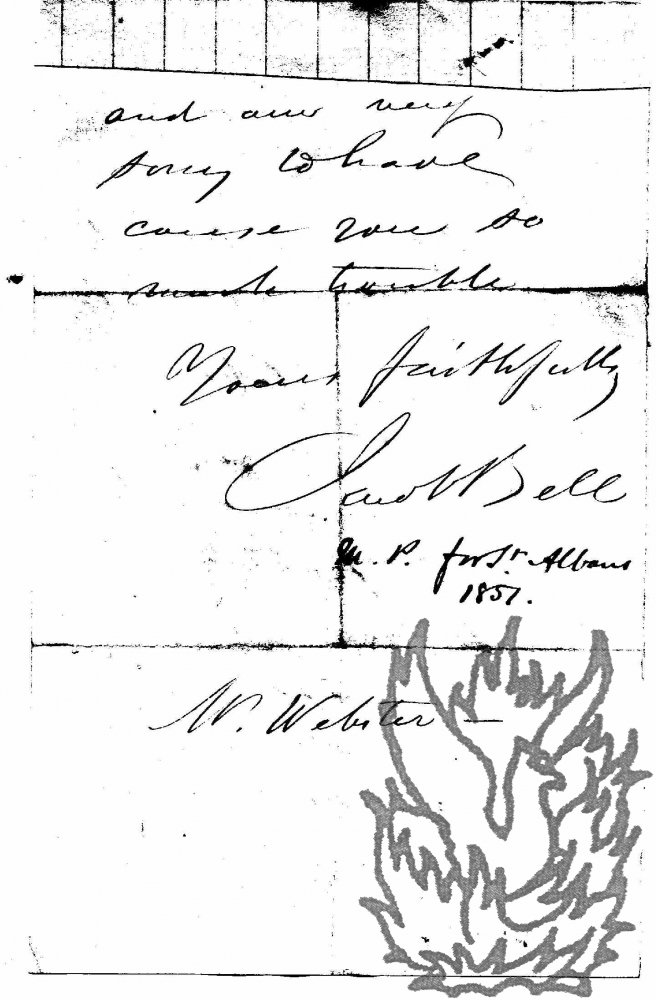 and am very
sorry to have
cause you so
much trouble
Yours faithfully
Jacob Bell
M.P. for St Albans
1851.
W. Webster —